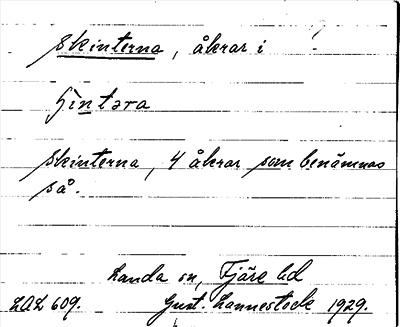 Skinterna, åkrar i
Skinterna, 4 åkrar som benämnas
så.
Landa sn, Fjäre hd
LAL 609. Gust. Lannestock 1929.